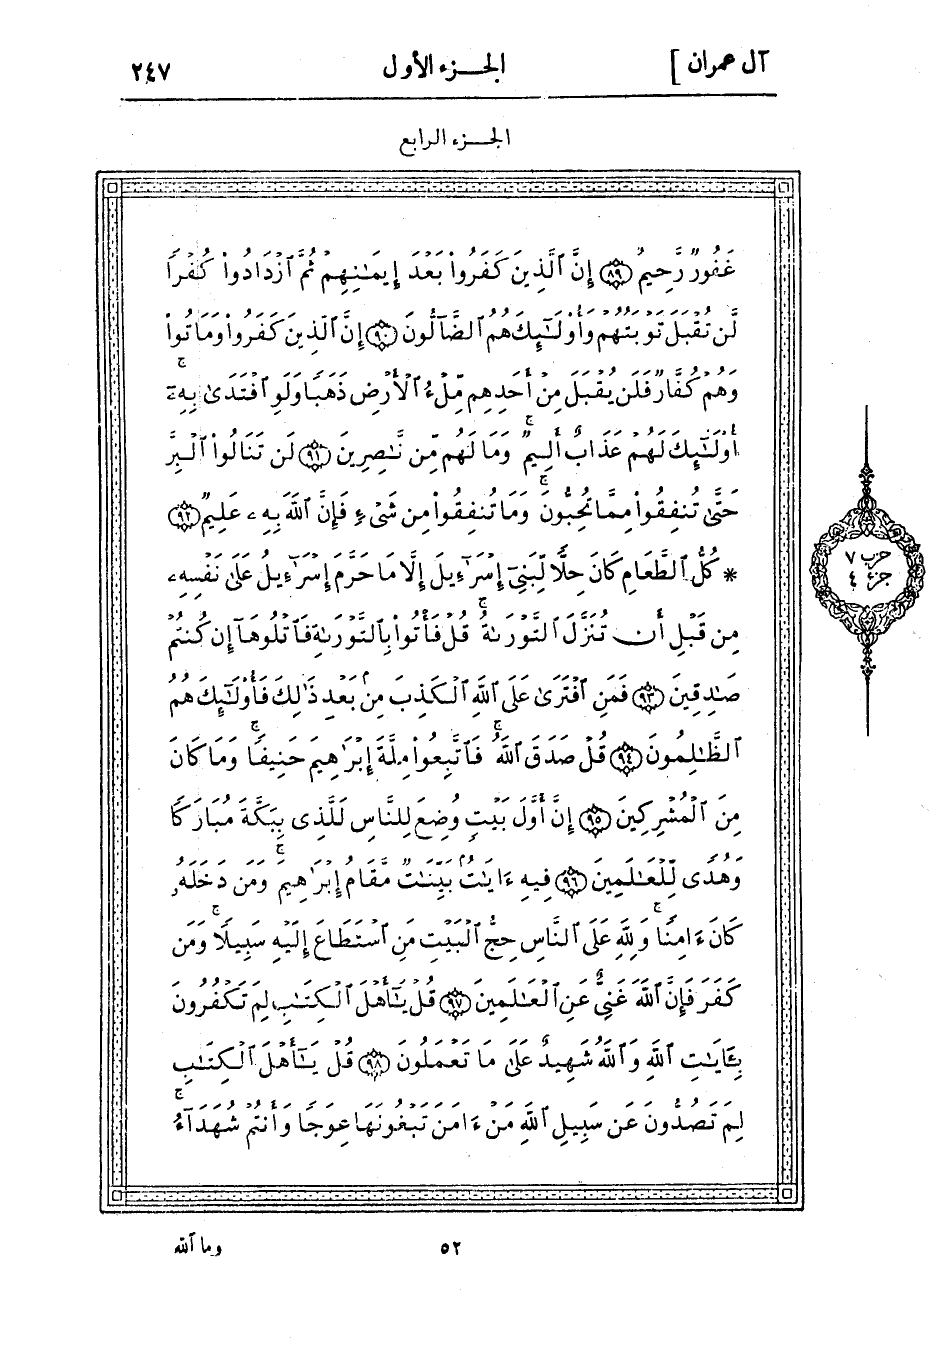 آل عمران ] الجـزء الأول ٢٤٧
الجـزء الرابع
غَفُورٌ رَّحِيمٌ ﴿٨٩﴾ إِنَّ ٱلَّذِينَ كَفَرُواْ بَعْدَ إِيمَـٰنِهِمْ ثُمَّ ٱزْدَادُواْ كُفْرًا
لَّن تُقْبَلَ تَوْبَتُهُمْ وَأُوْلَـٰٓئِكَ هُمُ ٱلضَّآلُّونَ ﴿٩٠﴾ إِنَّ ٱلَّذِينَ كَفَرُواْ وَمَاتُواْ
وَهُمْ كُفَّارٌ فَلَن يُقْبَلَ مِنْ أَحَدِهِم مِّلْءُ ٱلْأَرْضِ ذَهَبًا وَلَوِ ٱفْتَدَىٰ بِهِۦٓ ۗ
أُوْلَـٰٓئِكَ لَهُمْ عَذَابٌ أَلِيمٌ ۖ وَمَا لَهُم مِّن نَّـٰصِرِينَ ﴿٩١﴾ لَن تَنَالُواْ ٱلْبِرَّ
حَتَّىٰ تُنفِقُواْ مِمَّا تُحِبُّونَ ۚ وَمَا تُنفِقُواْ مِن شَىْءٍ فَإِنَّ ٱللَّهَ بِهِۦ عَلِيمٌ ﴿٩٢﴾
* كُلُّ ٱلطَّعَامِ كَانَ حِلًّا لِّبَنِىٓ إِسْرَٰٓءِيلَ إِلَّا مَا حَرَّمَ إِسْرَٰٓءِيلُ عَلَىٰ نَفْسِهِۦ
مِن قَبْلِ أَن تُنَزَّلَ ٱلتَّوْرَىٰةُ ۗ قُلْ فَأْتُواْ بِٱلتَّوْرَىٰةِ فَٱتْلُوهَآ إِن كُنتُمْ
صَـٰدِقِينَ ﴿٩٣﴾ فَمَنِ ٱفْتَرَىٰ عَلَى ٱللَّهِ ٱلْكَذِبَ مِنۢ بَعْدِ ذَٰلِكَ فَأُوْلَـٰٓئِكَ هُمُ
ٱلظَّـٰلِمُونَ ﴿٩٤﴾ قُلْ صَدَقَ ٱللَّهُ ۗ فَٱتَّبِعُواْ مِلَّةَ إِبْرَٰهِيمَ حَنِيفًا ۖ وَمَا كَانَ
مِنَ ٱلْمُشْرِكِينَ ﴿٩٥﴾ إِنَّ أَوَّلَ بَيْتٍ وُضِعَ لِلنَّاسِ لَلَّذِى بِبَكَّةَ مُبَارَكًا
وَهُدًى لِّلْعَـٰلَمِينَ ﴿٩٦﴾ فِيهِ ءَايَـٰتٌۢ بَيِّنَـٰتٌ مَّقَامُ إِبْرَٰهِيمَ ۖ وَمَن دَخَلَهُۥ
كَانَ ءَامِنًا ۗ وَلِلَّهِ عَلَى ٱلنَّاسِ حِجُّ ٱلْبَيْتِ مَنِ ٱسْتَطَاعَ إِلَيْهِ سَبِيلًا ۚ وَمَن
كَفَرَ فَإِنَّ ٱللَّهَ غَنِىٌّ عَنِ ٱلْعَـٰلَمِينَ ﴿٩٧﴾ قُلْ يَـٰٓأَهْلَ ٱلْكِتَـٰبِ لِمَ تَكْفُرُونَ
بِـَٔايَـٰتِ ٱللَّهِ وَٱللَّهُ شَهِيدٌ عَلَىٰ مَا تَعْمَلُونَ ﴿٩٨﴾ قُلْ يَـٰٓأَهْلَ ٱلْكِتَـٰبِ
لِمَ تَصُدُّونَ عَن سَبِيلِ ٱللَّهِ مَنْ ءَامَنَ تَبْغُونَهَا عِوَجًا وَأَنتُمْ شُهَدَآءُ ۗ
حزب ٧
جزء ٤
٥٢ وما ٱلله